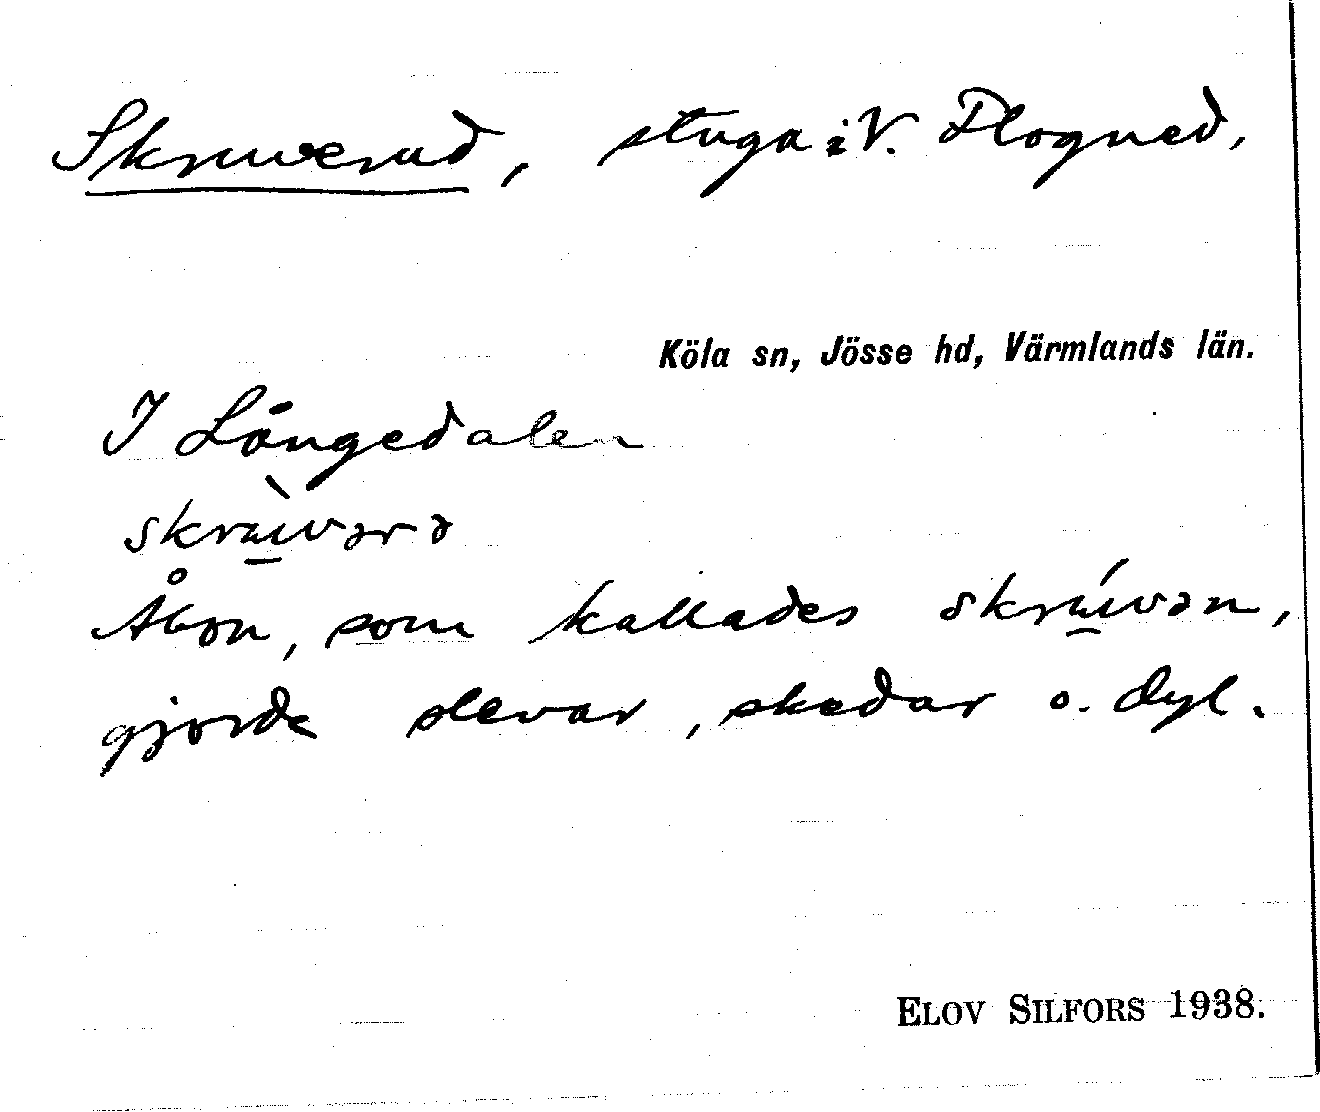 Skruverud, stuga i V. Flogned,
Köla sn, Jösse hd, Värmlands län.
I Långedalen
skrùvərə
Åbon, som kallades skrúvən,
gjorde slevar, skedar o. dyl.
ELOV SILFORS 1938.